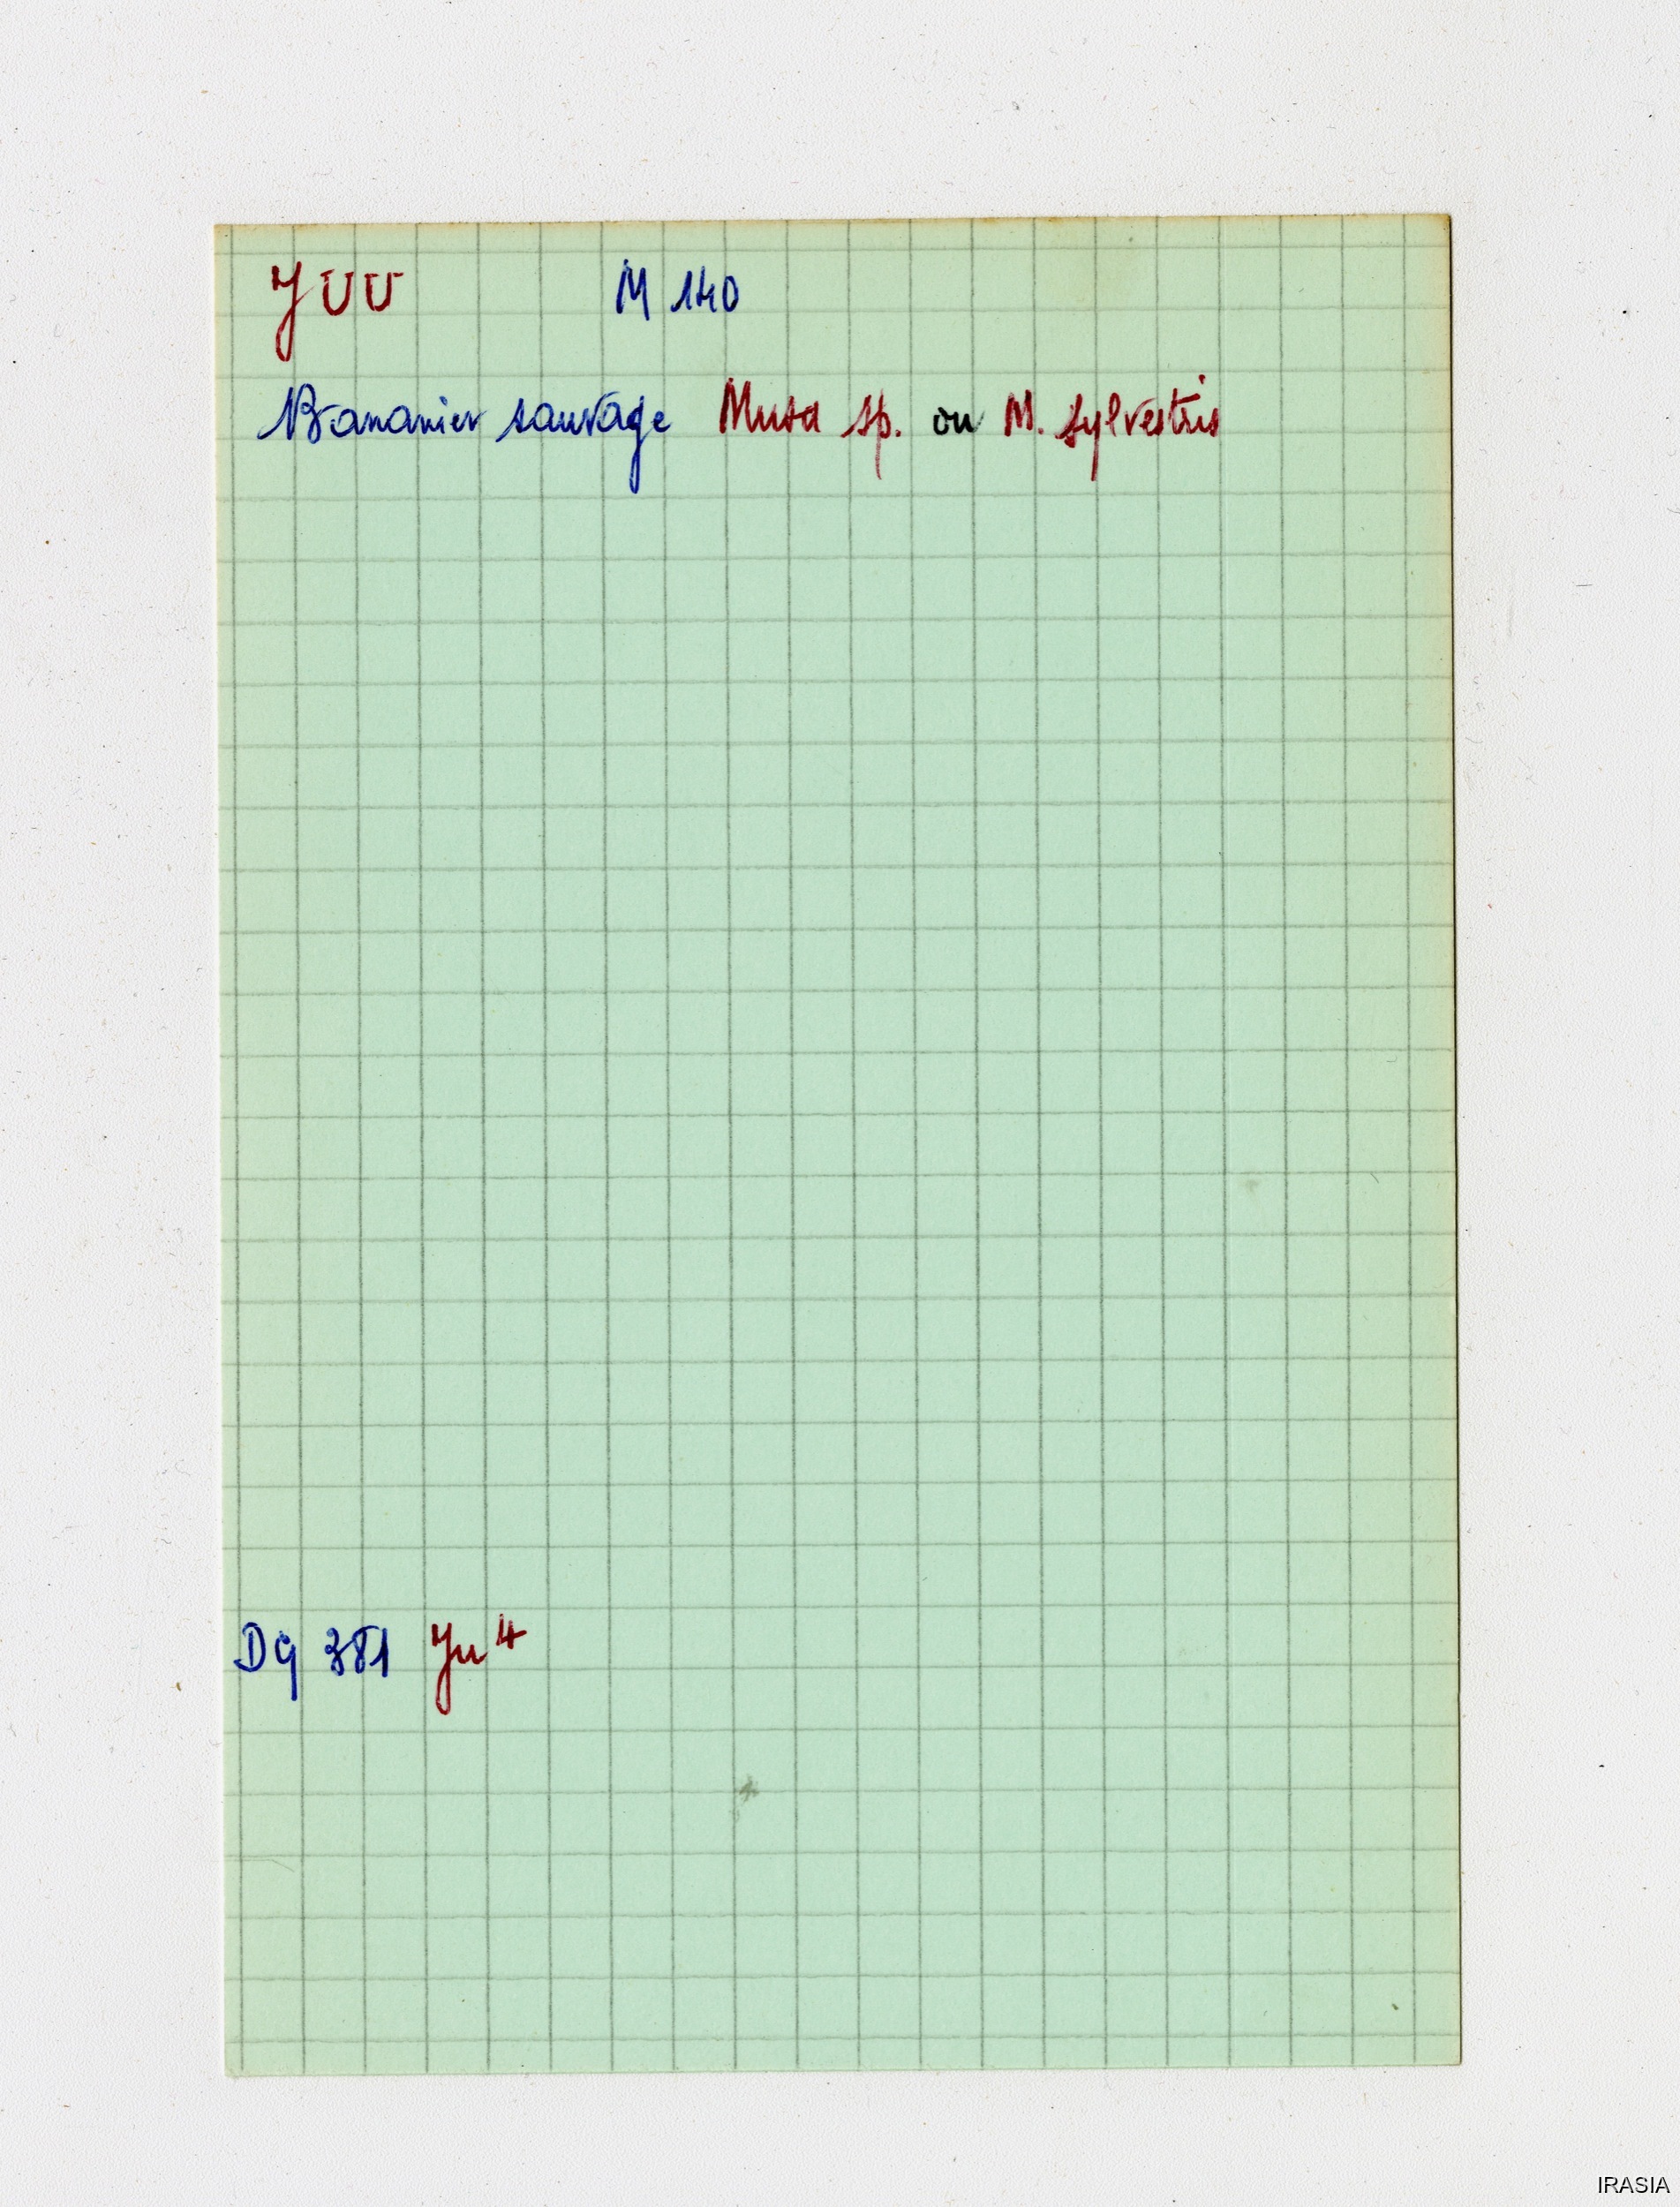 YUU M 140
Bananier sauvage Musa sp. ou M. sylvestris
Dg 381 Yu 4
IRASIA